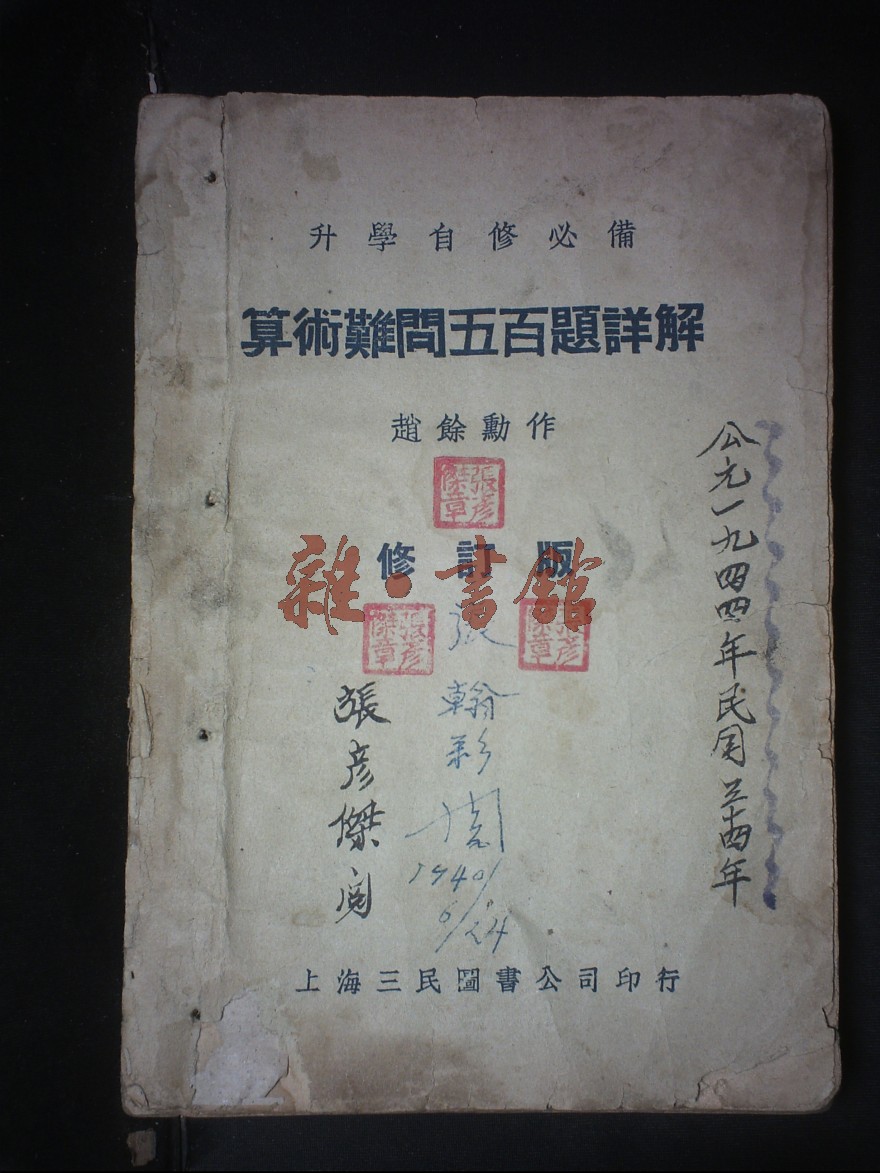 升學自修必備
算術難問五百題詳解
趙餘勳作
張彦傑章
修訂版
雜·書館
張彦傑章
張彦傑章
張翰彩閱
1940/6/24
張彦傑閱
公元一九四四年民國三十四年
上海三民圖書公司印行